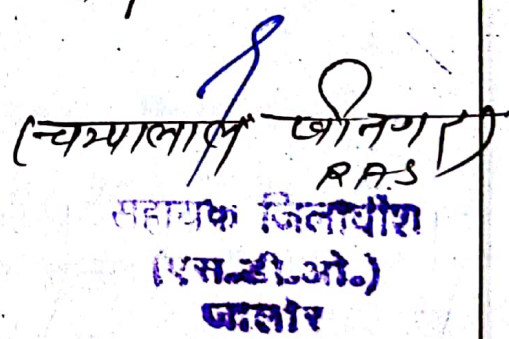 (चम्पालाल जीनगर)
RAS
सहायक जिलाधीश
(एस.डी.ओ.)
जालोर